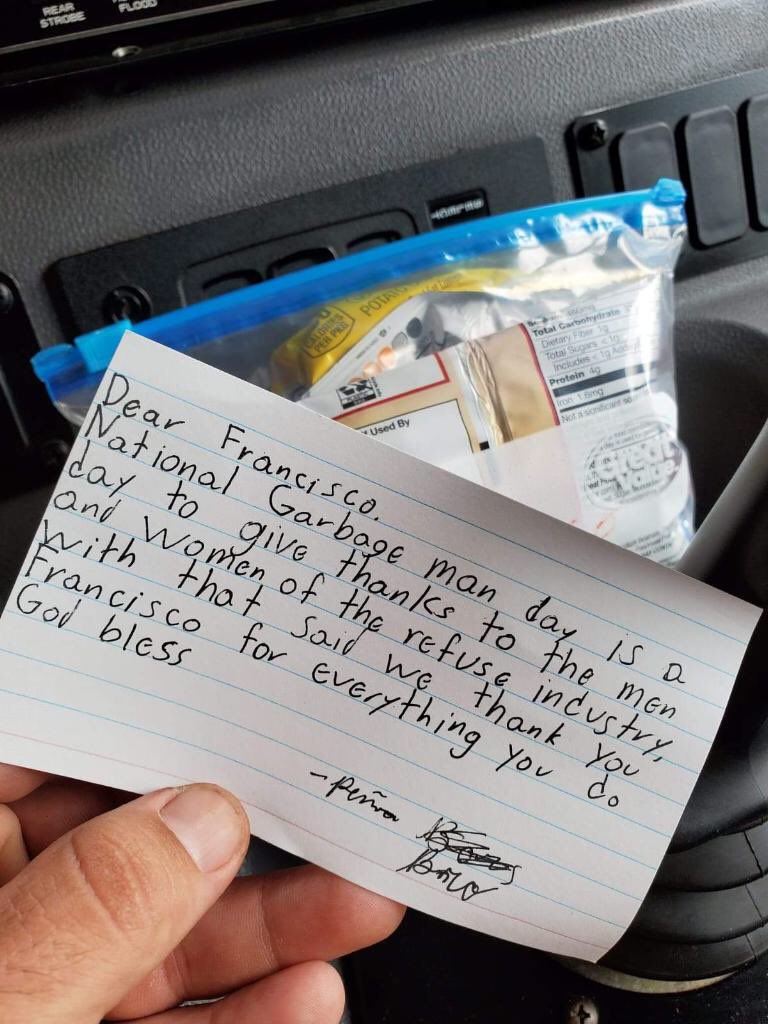 REAR
STROBE
FLOOD
POTATO
CALORIES
PER PKG
Total Carbohydrate
Dietary Fiber 1g
Total Sugars <1g
Includes <1g
Protein 4g
Iron 1.6mg
Not a significant
Used By
Great
Value
Dear Francisco.
National Garbage man day is a
day to give thanks to the men
and Women of the refuse industry,
with that said we thank you
Francisco for everything you do
God bless
-Peña